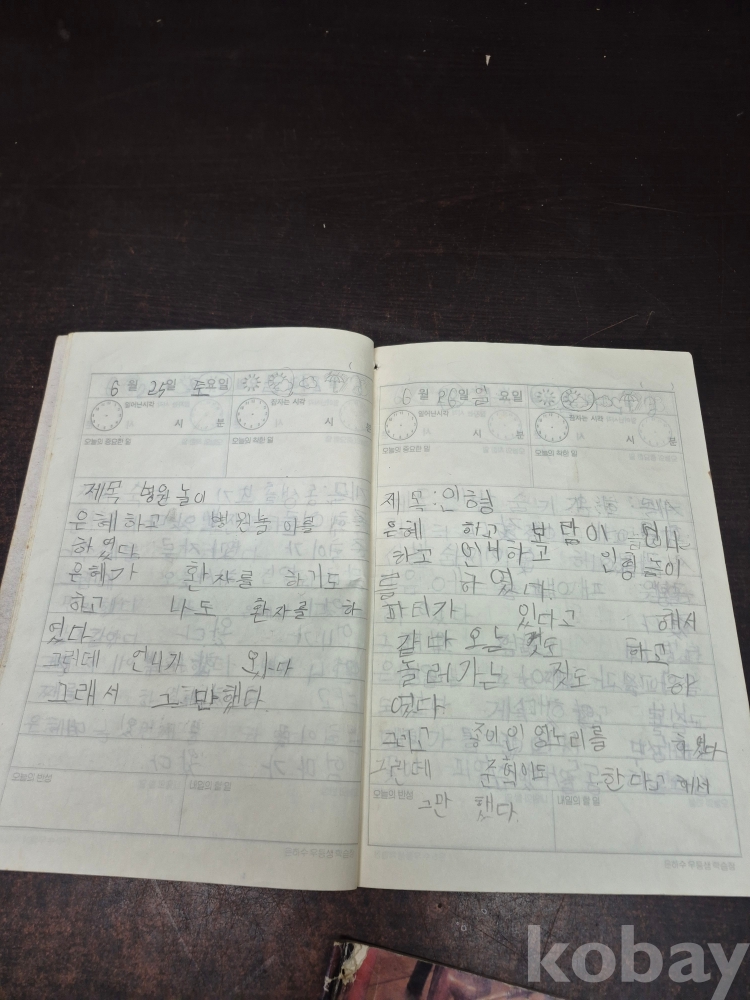 6월 25일 토요일
일어난시각
잠자는 시각
시 분
오늘의 중요한 일
오늘의 착한 일
제목 병원놀이
은혜하고 병원놀 이를
하였다
은혜가 환자를 하기도
하고 나도 환자를 하
였다
그런데 언니가 왔다
그래서 그만했다.
오늘의 반성
내일의 할 일
6월 26일 일요일
일어난시각
잠자는 시각
시 분
오늘의 중요한 일
오늘의 착한 일
제목:인형
은혜 하고 보람이 언니
하고 언니하고 인형놀이
를 하였다
파티가 있다고 해서
같다 오는 것도 하고
놀러가는 것도 하
였다
그리고 종이인형노리를 하였다
그런데 준혁이도 한다고 해서
그만 했다.
오늘의 반성
내일의 할 일
kobay